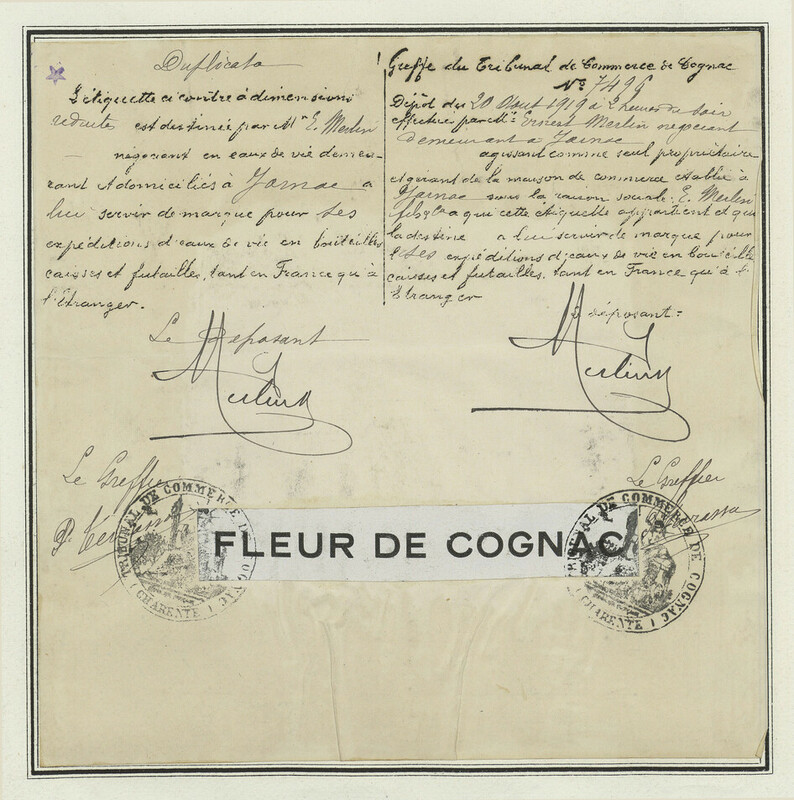 Duplicata
L'étiquette ci contre à dimensions
réduites est destinée par Mr E. Merlin
négociant en eaux de vie demeu-
rant & domiciliés à Jarnac a
lui servir de marque pour ses
expéditions d'eaux de vie en bouteilles
caisses et futailles, tant en France qu'à
l'étranger.
Le Deposant
Merlin
Le Greffier
Greffe du Tribunal de Commerce de Cognac
No 7496
Dépôt du 20 Aout 1919 à 2 heures du soir
effectué par Mr Ernest Merlin negociant
demeurant a Jarnac
agissant comme seul propriétaire
et gérant de la maison de commerce établie à
Jarnac sous la raison sociale: E. Merlin
fils & Co a qui cette étiquette appartient et qui
la destine a lui servir de marque pour
ses expéditions d'eaux de vie en bouteilles
caisses et futailles, tant en France qu'à l'
Etranger
Le déposant:
Merlin
Le Greffier
FLEUR DE COGNAC
TRIBUNAL DE COMMERCE DE COGNAC
(CHARENTE)
TRIBUNAL DE COMMERCE DE COGNAC
(CHARENTE)